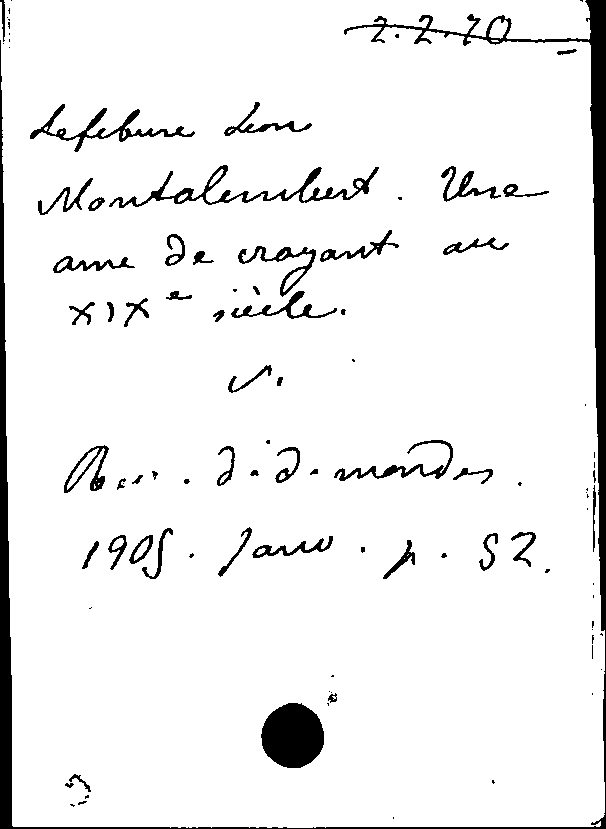 2.2.70
Lefebure Léon
Montalembert. Une
ame de croyant au
XIXe siècle.
v.
Rev. d. d. mondes.
1905. Janv. p. 52.